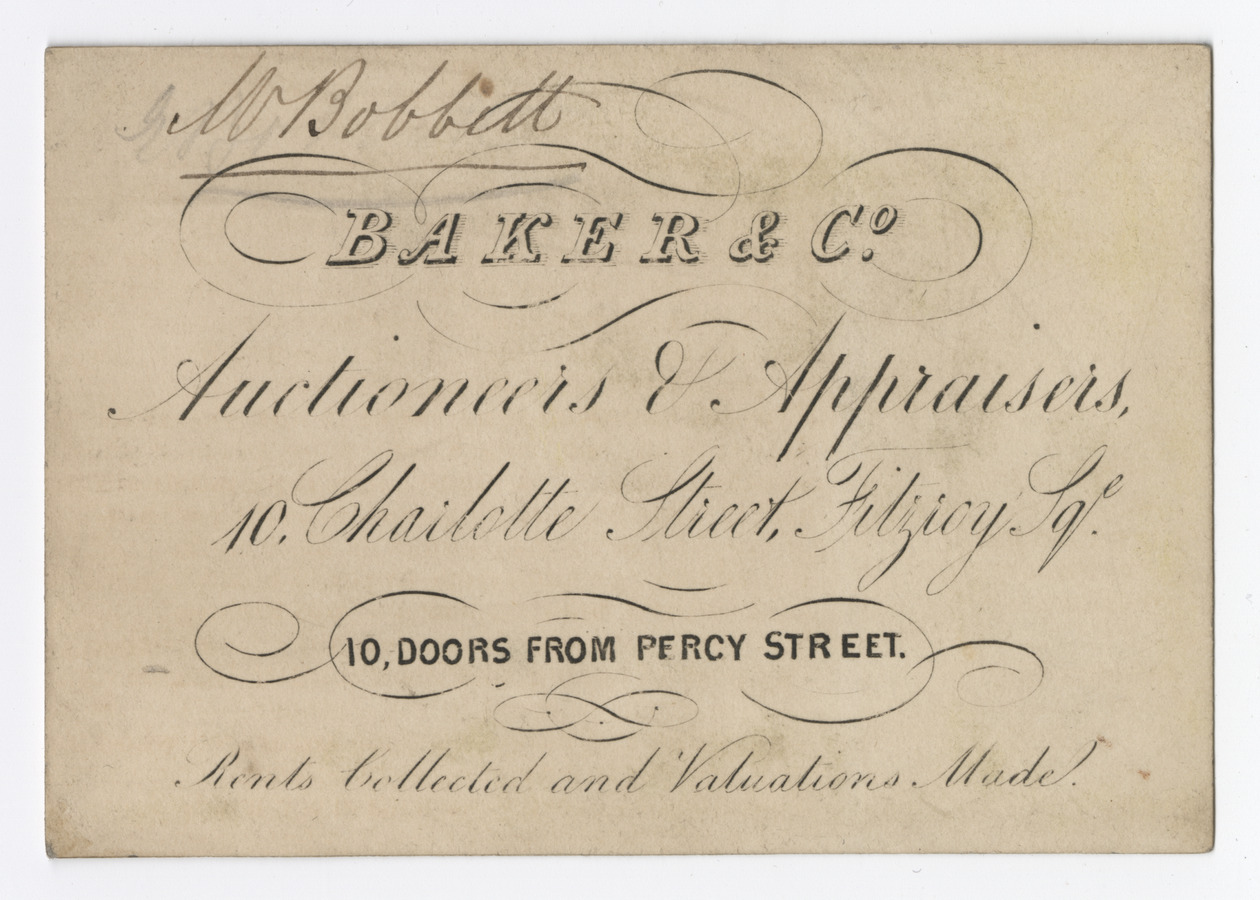 Mr Bobbett
BAKER & Co.
Auctioneers & Appraisers,
10, Charlotte Street, Fitzroy Sqe.
10, DOORS FROM PERCY STREET.
Rents Collected and Valuations Made.